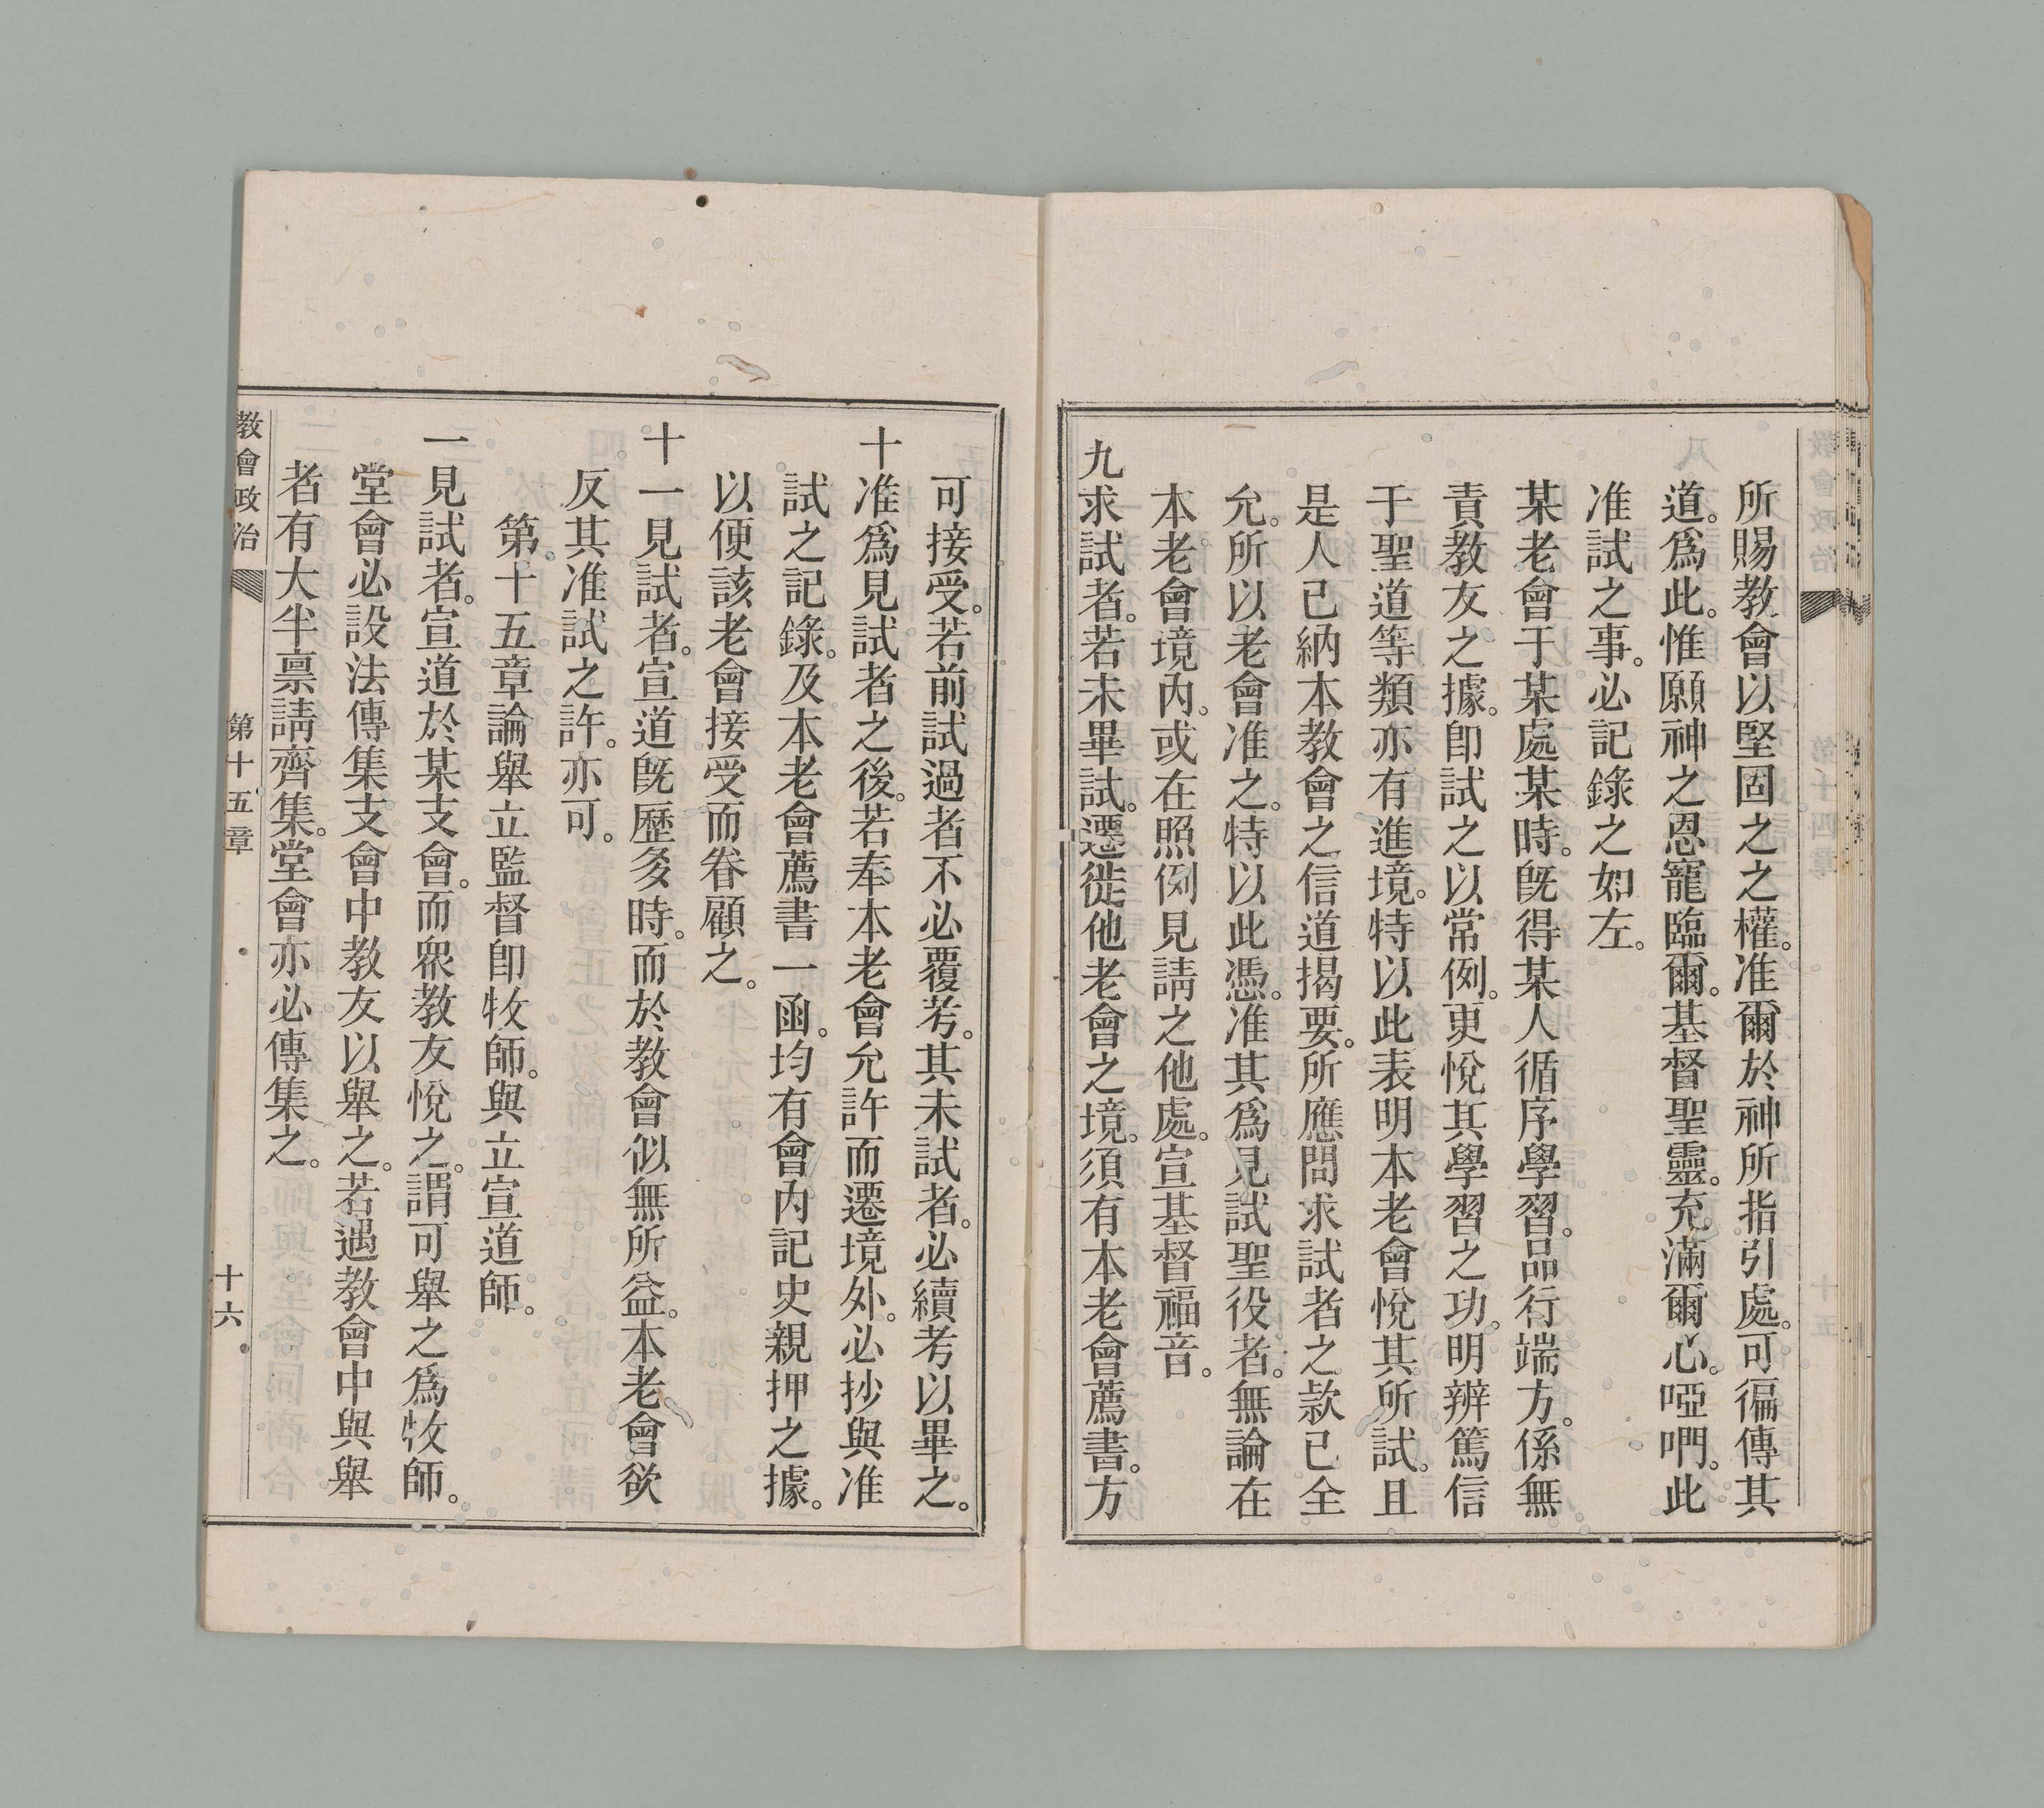 所賜教會以堅固之之權。准爾於神所指引處。可徧傳其
道。爲此。惟願神之恩寵臨爾。基督聖靈。充滿爾心。啞們。此
准試之事。必記錄之如左。
某老會于某處某時。旣得某人循序學習。品行端方。係無
責教友之據。卽試之以常例。更悅其學習之功。明辨篤信
于聖道等類亦有進境。特以此表明本老會悅其所試。且
是人已納本教會之信道揭要。所應問求試者之款已全
允。所以老會准之。特以此憑。准其爲見試聖役者。無論在
本老會境內。或在照例見請之他處。宣基督福音。
九求試者。若未畢試。遷徙他老會之境。須有本老會薦書。方
可接受。若前試過者不必覆考。其未試者。必續考以畢之。
十准爲見試者之後。若奉本老會允許而遷境外。必抄與准
試之記錄。及本老會薦書一函。均有會內記史親押之據。
以便該老會接受而眷顧之。
十一見試者。宣道旣歷多時。而於教會似無所益。本老會欲
反其准試之許。亦可。
第十五章論舉立監督卽牧師。與立宣道師。
一見試者。宣道於某支會。而衆教友悅之。謂可舉之爲牧師。
堂會必設法傳集支會中教友以舉之。若遇教會中與舉
者有大半禀請齊集。堂會亦必傳集之。
教會政治
第十五章
十六